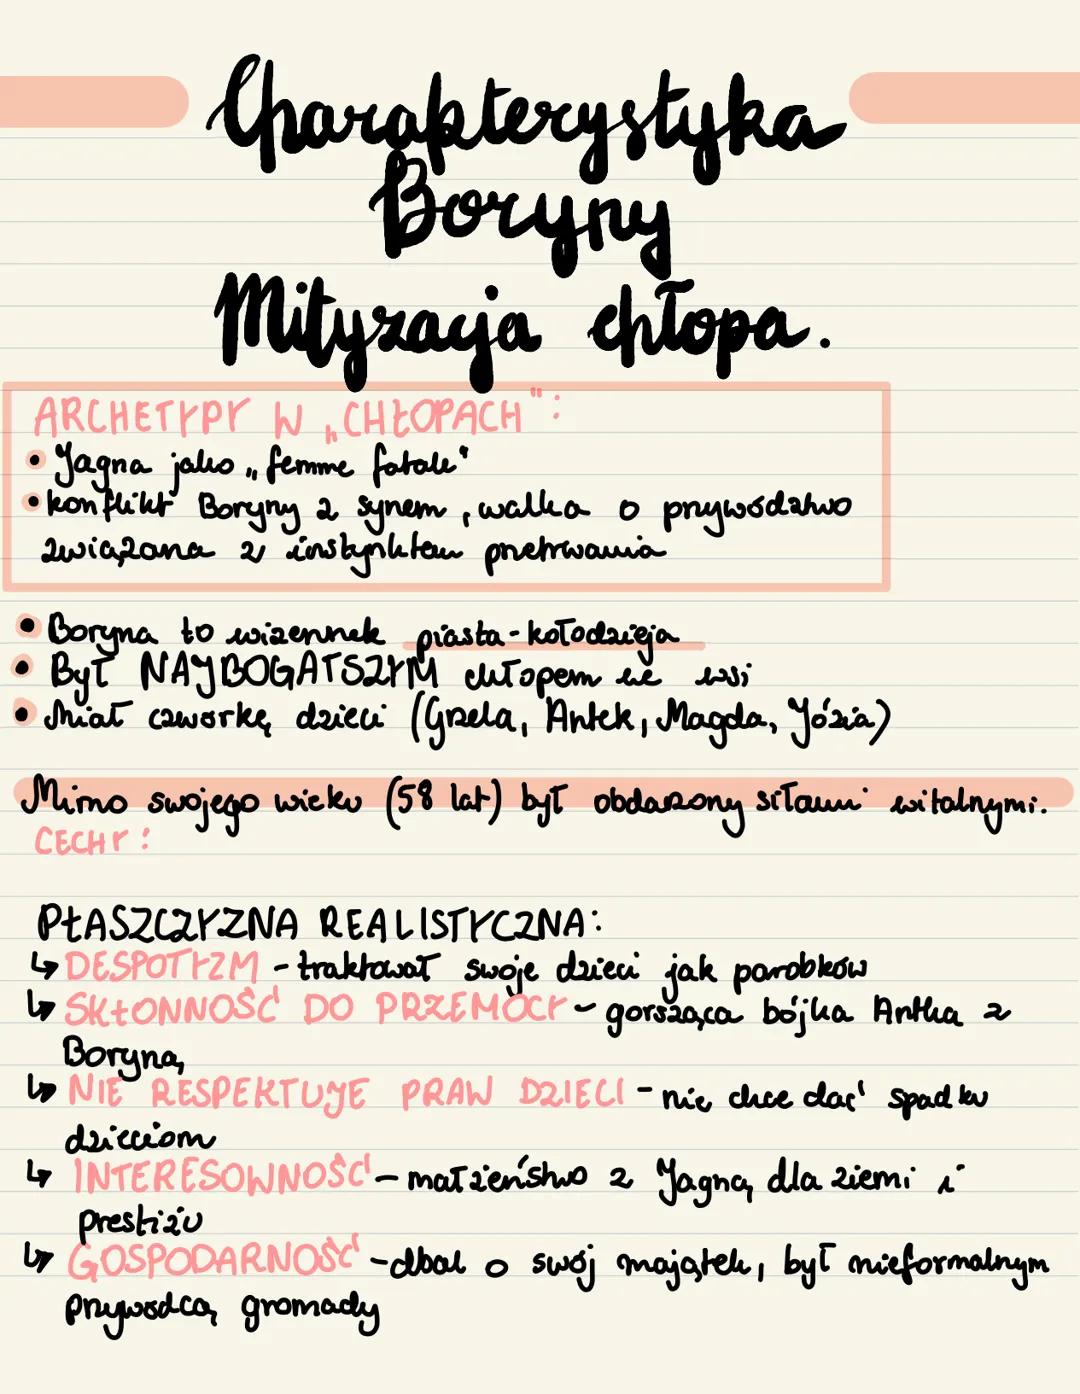 Charakterystyka
Boryny
Mityzacja chłopa.
ARCHETYPY W „CHŁOPACH":
• Jagna jako „femme fatale"
• konflikt Boryny z synem, walka o przywództwo
związana z instynktem przetrwania
• Boryna to wizerunek piasta-kołodzieja
• Był NAJBOGATSZYM chłopem we wsi
• Miał czwórkę dzieci (Grzela, Antek, Magda, Józia)
Mimo swojego wieku (58 lat) był obdarzony siłami witalnymi.
CECHY:
PŁASZCZYZNA REALISTYCZNA:
↳ DESPOTYZM - traktował swoje dzieci jak parobków
↳ SKŁONNOŚĆ DO PRZEMOCY - gorsząca bójka Antka z
Boryną
↳ NIE RESPEKTUJE PRAW DZIECI - nie chce dać spadku
dzieciom
↳ INTERESOWNOŚĆ - małżeństwo z Jagną dla ziemi i
prestiżu
↳ GOSPODARNOŚĆ - dbał o swój majątek, był nieformalnym
przywódcą gromady